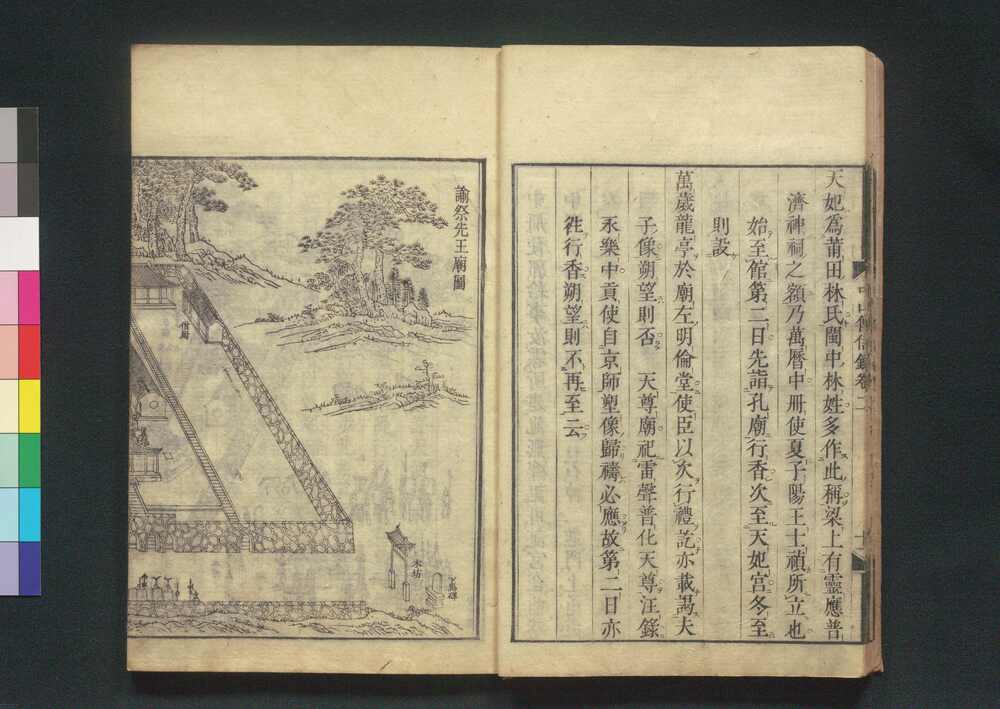 天妃為莆田林氏閩中林姓多作此稱梁上有靈應普
濟神祠之額乃萬曆中冊使夏子陽王士禎所立也
始至館第二日先詣孔廟行香次至天妃宮冬至
則設
萬歲龍亭於廟左明倫堂使臣以次行禮訖亦載謁夫
子像朔望則否　天尊廟祀雷聲普化天尊汪錄
永樂中貢使自京師塑像歸禱必應故第二日亦
徃行香朔望則不再至云
中山傳信錄卷二
諭祭先王廟圖
僧寮
木坊
下馬碑